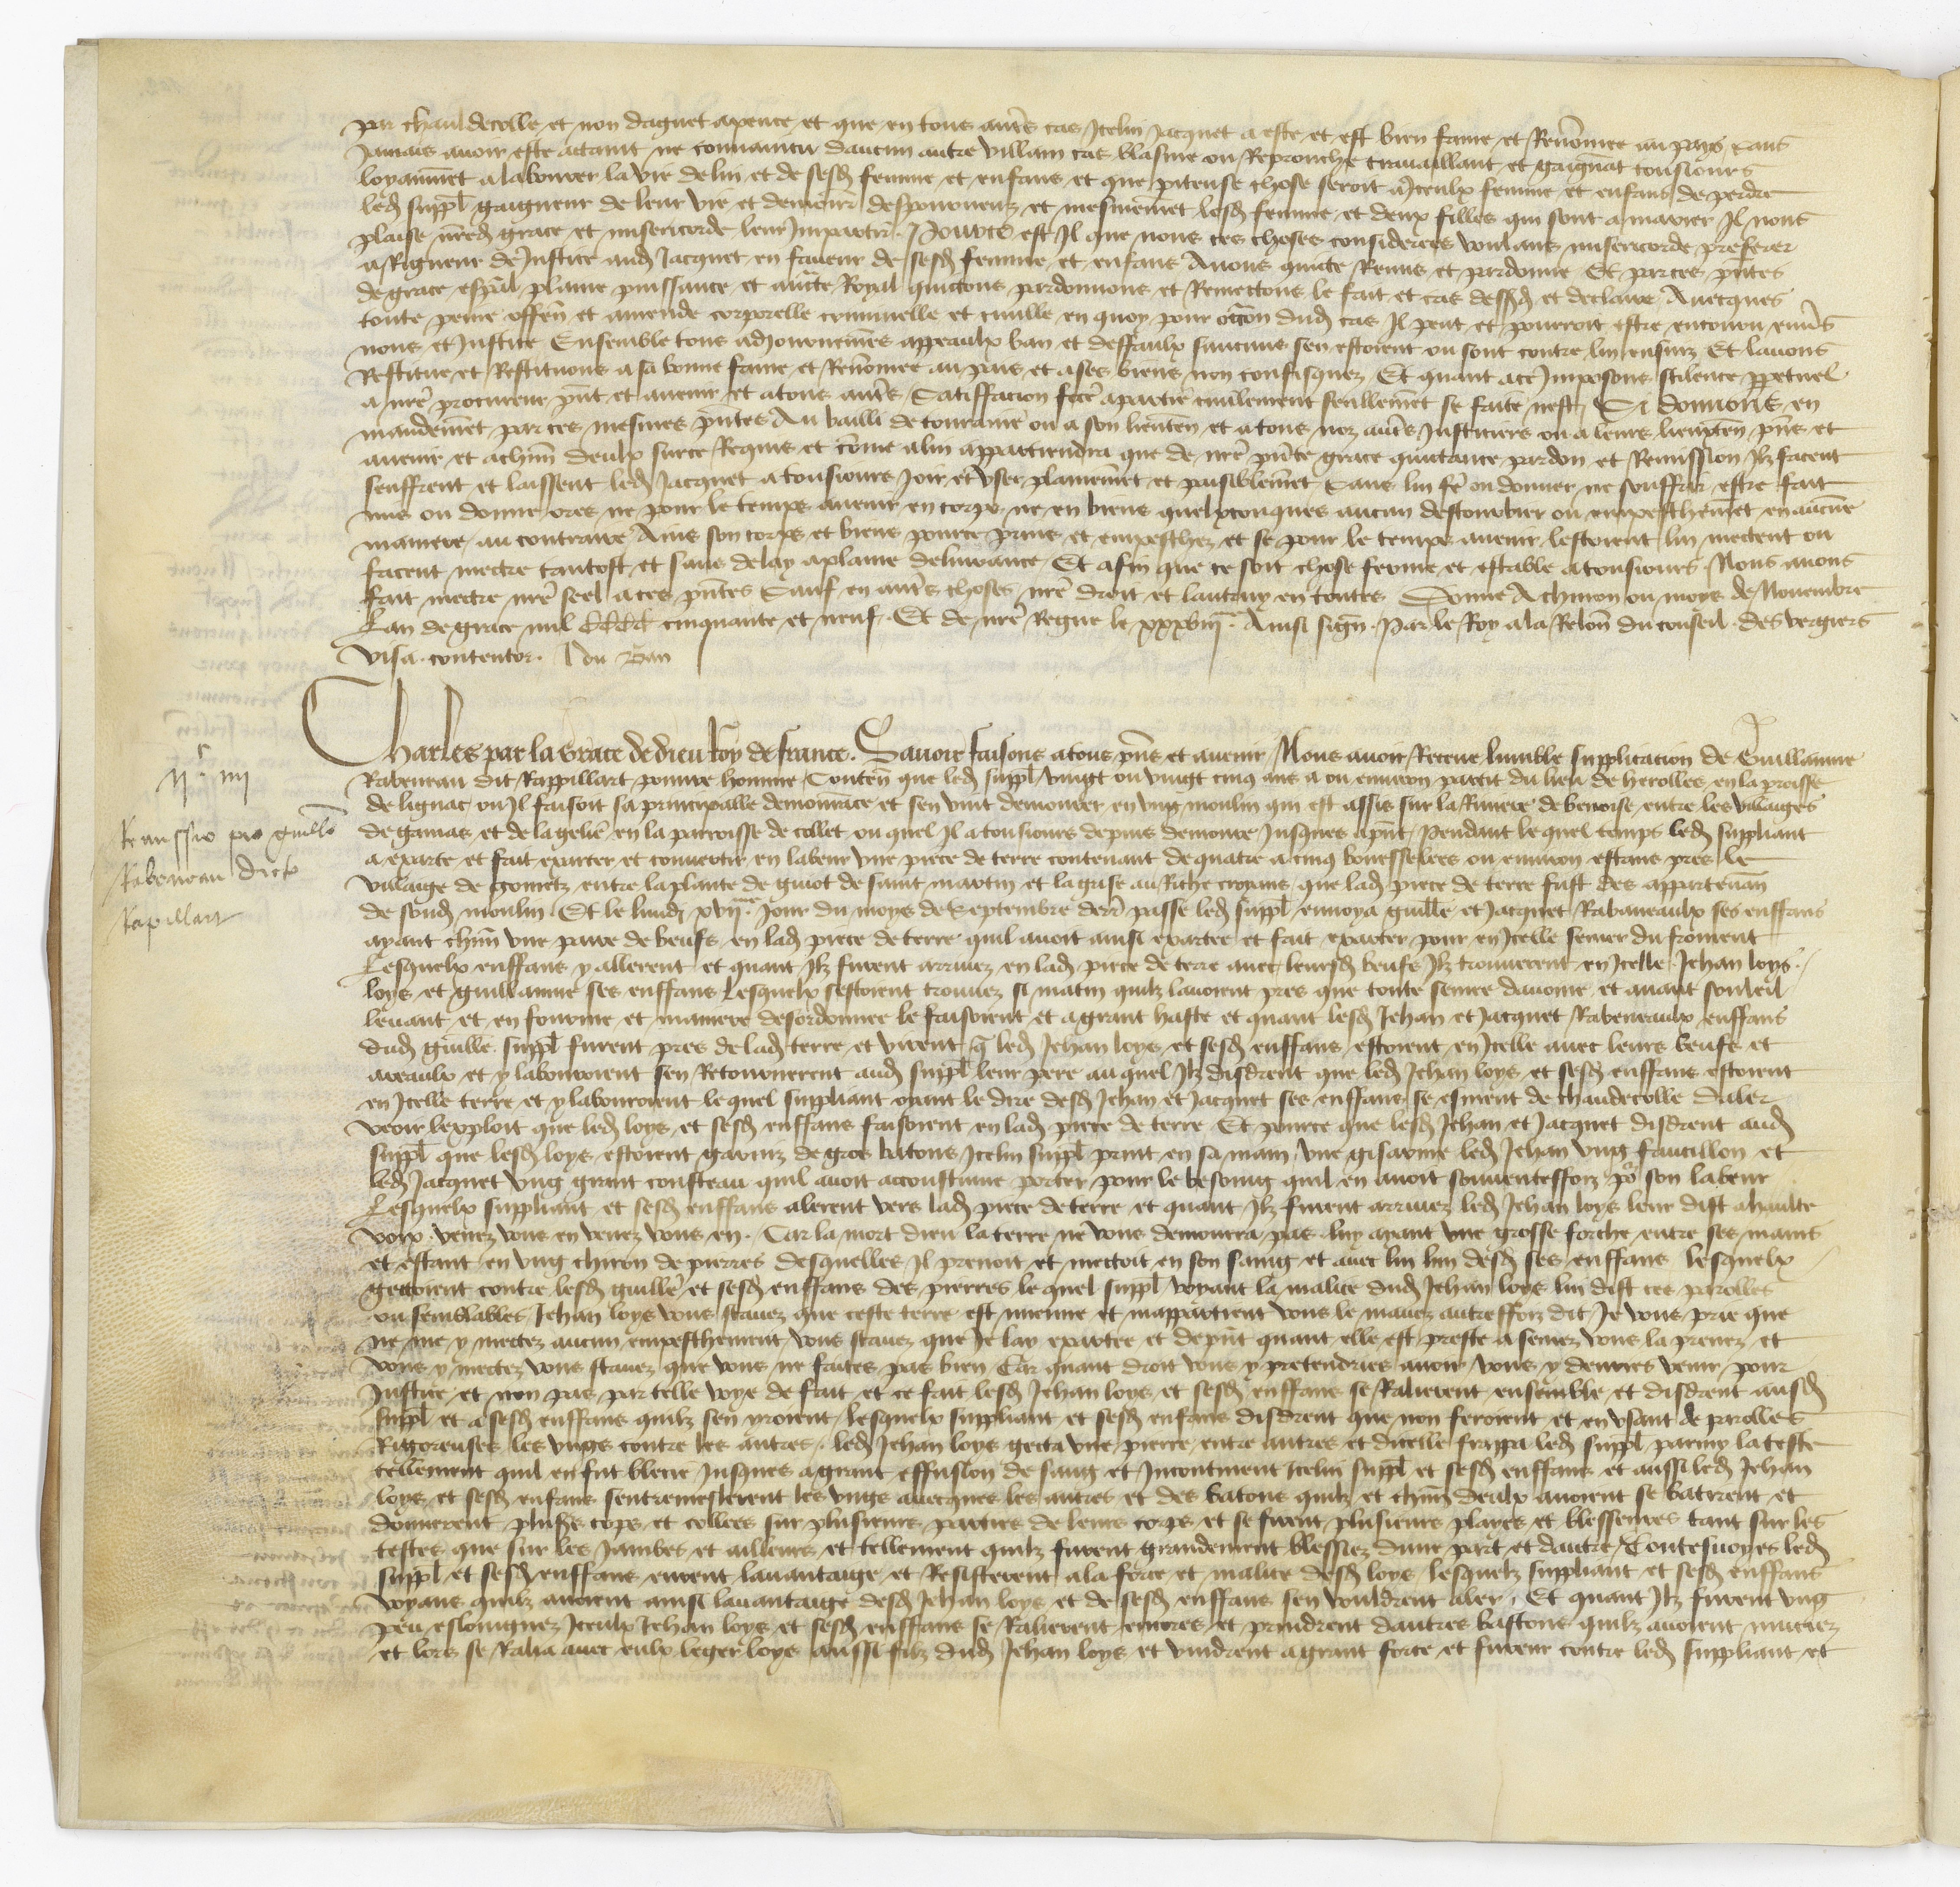 par chauldecolle et non daguet apence et que en tous autrẽs cas Icelui Jacquet a este et est bien fame et Renõmee au pays sans
Jamais avoir este actaint ne convaincu daucun autre villain cas blasme ou Reprouche travaillant et gaignãt tousiours
loyaumẽt a labourer la vie de lui et de sesd femme et enfans et que piteuse chose seroit a Iceulx femme et enfans de perdre
led suppl gaigneur de leur vie et demourer despourveuz et mesmemẽt lesd femme et deux filles qui sont a marier Il nous
plaise nrẽd grace et misericorde leur Impartir. Pource est Il que nous ces choses considerees voulans misericorde preferer
a Rigueur de Justice aud Jacquet en faveur de sesd femme et enfans Avons quicte Remis et pardonne Et par ces pñtes
de grace espãl plaine puissance et auctẽ Royal quictons pardonnons et Remettons le fait et cas dessusd et declaire Avecques
toute peine offẽn et amende corporelle criminelle et civille en quoy pour occõn dud cas Il peut et pourroit estre encouru envs
nous et Justice Ensemble tous adjournemẽs appeaulx ban et deffaulx saucuns sen estoient ou sont contre lui ensuiz Et lavons
Restitue et Restituons a sa bonne fame et Renõmee au pais et a ses biens non confisquez Et quant a ce Imposons scilence ppetuel
a nrẽ procureur pñt et avenir et a tous autrẽs Satiffacion fctẽ a partie civilement seullemẽt se faite nest Si donnons en
mandemẽt par ces mesmes pñtes Au bailli de touraine ou a son lieutẽn et a tous noz autrẽs Justiciers ou a leurs lieuxtẽn pñs et
avenir et a chũn deulx surce Requis et cõme a lui appartiendra que de nrẽ pñte grace quictance pardon et Remission Ilz facent
seuffrent et laissent led Jacquet a tousiours Joir et vser plainemẽt et paisiblemẽt Sans lui fẽ ou donner ne souffrir estre fait
mis ou donne ores ne pour le temps avenir en corps ne en biens quelxconques aucun destourbier ou empeschemẽt en aucune
maniere au contraire Ains son corps et biens pource prins et empeschez et se pour le temps avenir lestoient lui mectent ou
facent mectre tantost et sans delay a plaine delivrance Et afin que ce soit chose ferme et estable a tousiours Nous avons
fait mectre nrẽ seel a ces pñtes Sauf en autrẽs choses nrẽ droit et lautruy en toutes Donne A chinon ou moys de Novembre
Lan de grace mil CCCC cinquante et neuf Et de nrẽ Regne le xxxviij. Ainsi sigñ Par le Roy a la Relõn du conseil des vergiers
Visa contentor. J du Ban
Charles par la grace de dieu Roy de france. Savoir faisons a tous pñs et avenir Nous avoir Receue lumble supplicacion de Guillaume
Rabeneau dit Rappillart pouvre homme Contẽn que led suppl vingt ou vingt cinq ans a ou environ partit du lieu de herolles en la proisse
de lignac ou Il faisoit sa principalle demourãce et sen vint demourer en vng moulin qui est assis sur la Riviere de benoise entre les villaiges
de gamas et de la gelie en la parroisse de collet ou quel Il a tousiours depuis demoure Jusques apñt Pendant lequel temps led suppliant
a exarte et fait exarter et convertir en labeur vne piece de terre contenant de quatre a cinq boesselees ou environ estans pres le
villaige de gometz entre la plante de guiot de saint martin et la grise au Riche croyans que lad piece de terre fust des apparteñan
de sond moulin Et le lundi xvij.me Jour du moys de Septembre derr̃ passe led suppl envoya guillẽ et Jacquet Rabaneaulx ses enffans
ayant chũn vne paire de beufs en lad piece de terre quil avoit ainsi exartee et fait exarter pour en Icelle semer du froment
Lesquelx enffans y allerent et quant Ilz furent arrivez en lad piece de terre avec leursd beufs Ilz trouverent en Icelle Jehan loys
loys et guillaume ses enffans Lesquelx sestoient trouvez si matin quilz lavoient pres que toute semee davoine et avant souleil
levant et en fourme et maniere desordonnee le faisoient et a grant haste et quant lesd Jehan et Jacquet Rabeneaulx enffans
dud guillẽ suppl furent pres de lad terre et virent q̃ led Jehan loys et sesd enffans estoient en Icelle avec leurs beufs et
areaulx et y labouroient sen Retournerent aud suppl leur pere au quel Ilz disdrent que led Jehan loys et sesd enffans estoient
en Icelle terre et y labouroient lequel suppliant oiant le dire desd Jehan et Jacquet ses enffans se esment de chaudecolle daler
veoir lexploit que led loys et sesd enffans faisoient en lad piece de terre Et pource que lesd Jehan et Jacquet disdrent aud
suppl que lesd loys estoient garniz de gros bastons Icelui suppl print en sa main vne gisarme led Jehan vng faucillon et
led Jacquet vng grant cousteau quil avoit acoustume porter pour le besoing quil en avoit souventeffoiz po͛ son labeur
Lesquelx suppliant et sesd enffans alerent vers lad piece de terre et quant Ilz furent arrivez led Jehan loys leur dist a haulte
voix venez vous en venez vous en. Car la mort dieu la terre ne vous demourra pas luy ayant vne grosse forche entre ses mains
et estant en vng chiron de pierres desquelles Il prenoit et mettoit en son saing et avec lui lun desd ses enffans lesquelx
gectoient contre lesd guillẽ et sesd enffans des pierres lequel suppl voyant la malice dud Jehan loys lui dist ces parolles
ou semblables Jehan loys vous scavez que ceste terre est mienne et mappartient vous le mavez autreffoiz dit Je vous prie que
ne me y mectez aucun empeschement vous scavez que Je lay exartee et depñt quant elle est preste a semer vous la prenez et
vous y mectez vous scavez que vous ne faites pas bien Car quant droit vous y pretendries avoir vous y devries venir pour
Justice et non pas par telle voye de fait et ce fait lesd Jehan loys et sesd enffans se Ralierent ensemble et disdrent ausd
suppl et a sesd enffans quilz sen yroient lesquelx suppliant et sesd enfans disdrent que non feroient et en vsant de parolles
Rigoreuses les vngs contre les autres. led Jehan loys gecta vne pierre entre autres et dicelle frappa led suppl parmy la teste
tellement quil en fut blecie Jusques a grant effusion de sang et Incontinent Icelui suppl et sesd enffans et aussi led Jehan
loys et sesd enfans sentremeslerent les vngs avecques les autres et des bastons quilz et chũn deulx avoient se batirent et
donnerent plusrs cops et collees sur plusieurs parties de leurs corps et se firent plusieurs playes et blesseures tant sur les
testes que sur les Jambes et ailleurs et tellement quilz furent grandement blessiez dune part et dautre Toutesvoyes led
suppl et sesd enffans eurent lavantaige et Resisterent a la force et malice desd loys lesquelz suppliant et sesd enffans
voyans quilz avoient ainsi lavantaige desd Jehan loys et de sesd enffans sen vouldrent aler. Et quant Ilz furent vng
peu eslongnez Iceulx Jehan loys et sesd enffans se Ralierent encores et prindrent dautres bastons quilz avoient muciez
et lors se Ralia avec eulx leger loys aussi filz dud Jehan loys et vindrent a grant force et fureur contre led suppliant et
ijc iiij
Remissio pro guillõ
Rabeneau dicto
Rapillart